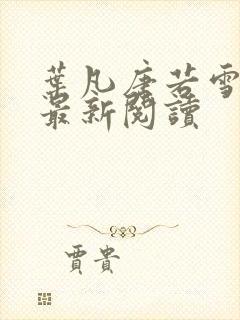 葉凡唐若雪
最新閱讀
賈貴